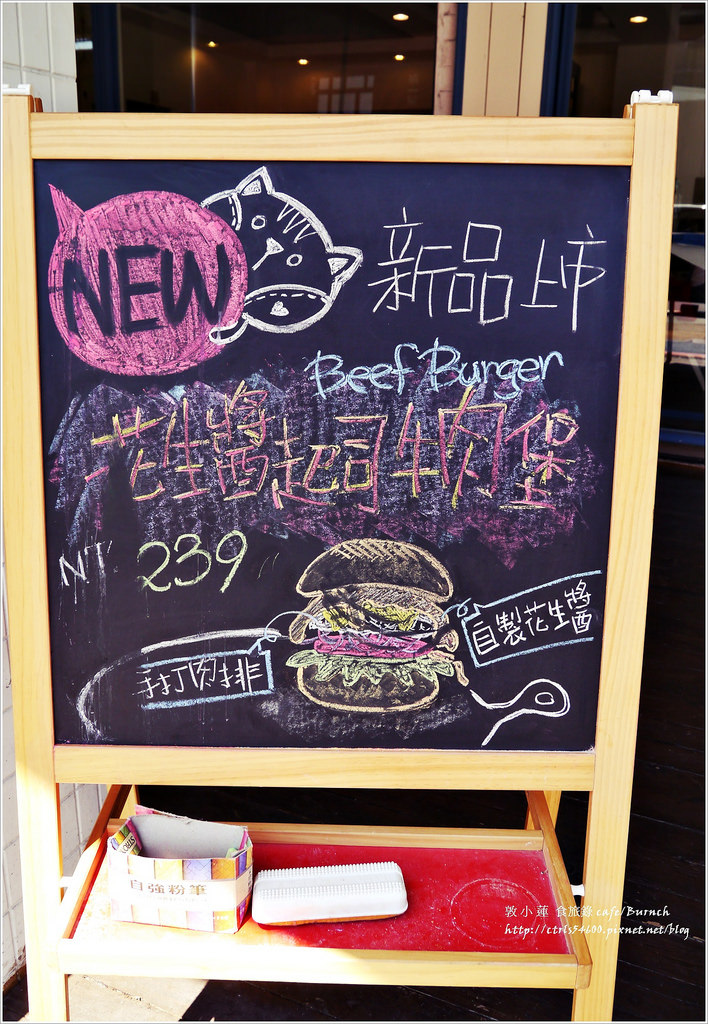 NEW
新品上市
Beef Burger
花生醬起司牛肉堡
NT 239
自製花生醬
手打肉排
自強粉筆
敦小蓮 食旅錄 cafe/Burnch
http://ctrls54600.pixnet.net/blog